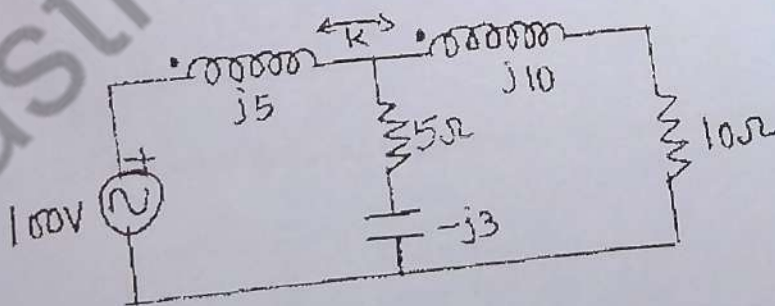 K
j5
j10
5Ω
10Ω
100V
+
-j3